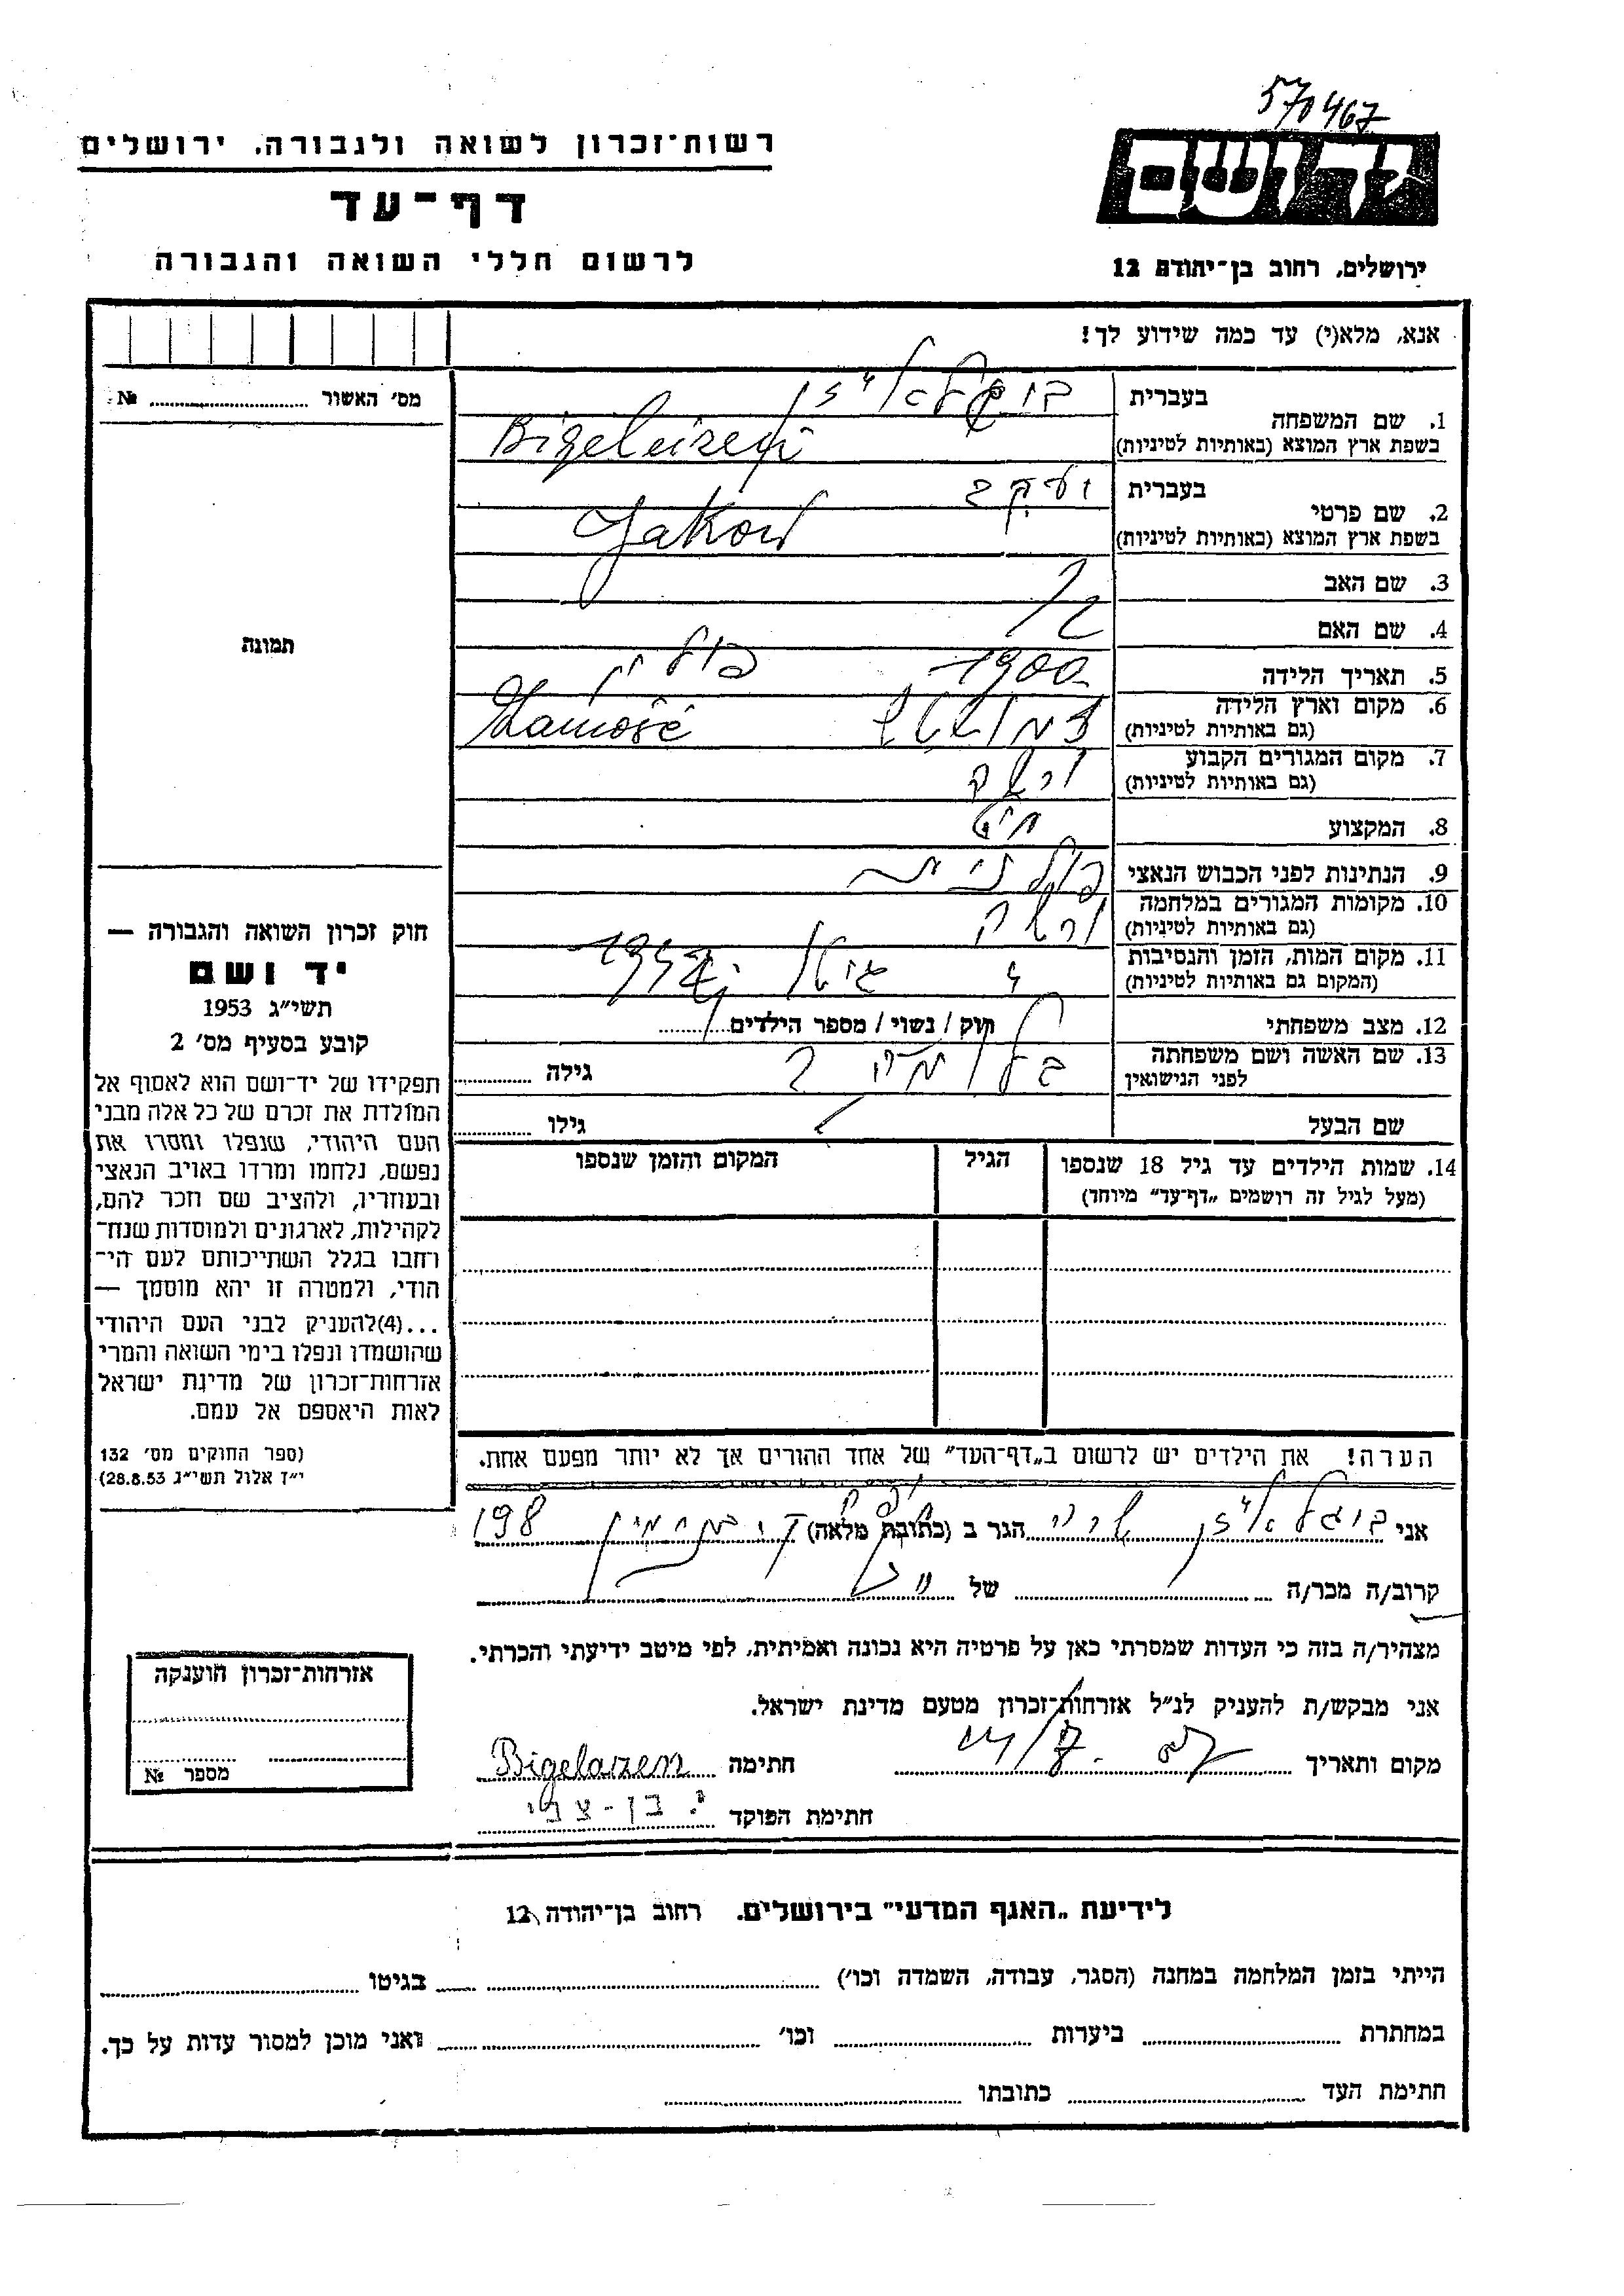 570467
רשות־זכרון לשואה ולגבורה, ירושלים
דף־עד
לרשום חללי השואה והגבורה
יד ושם
ירושלים, רחוב בן־יהודה 12
אנא, מלא(י) עד כמה שידוע לך!
מס׳ האשור № 
תמונה
חוק זכרון השואה והגבורה —
יד ושם
תשי״ג 1953
קובע בסעיף מס׳ 2
תפקידו של יד־ושם הוא לאסוף אל
המולדת את זכרם של כל אלה מבני
העם היהודי, שנפלו ומסרו את
נפשם, נלחמו ומרדו באויב הנאצי
ובעוזריו, ולהציב שם וזכר להם,
לקהילות, לארגונים ולמוסדות שנח־
רחבו בגלל השתייכותם לעם הי־
הודי, ולמטרה זו יהא מוסמך —
...(4)להעניק לבני העם היהודי
שהושמדו ונפלו בימי השואה והמרי
אזרחות־זכרון של מדינת ישראל
לאות היאספם אל עמם.
(ספר החוקים מס׳ 132
י״ז אלול תשי״ג 28.8.53)
בעברית
1. שם המשפחה
בשפת ארץ המוצא (באותיות לטיניות) Bigeleizen
בעברית יעקב
2. שם פרטי
בשפת ארץ המוצא (באותיות לטיניות) Jakow
3. שם האב
4. שם האם
5. תאריך הלידה 1900
6. מקום וארץ הלידה פולין
(גם באותיות לטיניות) Zamość
7. מקום המגורים הקבוע
(גם באותיות לטיניות) ורשה
8. המקצוע חייט
9. הנתינות לפני הכבוש הנאצי פולנית
10. מקומות המגורים במלחמה
(גם באותיות לטיניות) ורשה
11. מקום המות, הזמן והנסיבות
(המקום גם באותיות לטיניות) גיטו
12. מצב משפחתי רוק / נשוי / מספר הילדים
13. שם האשה ושם משפחתה
לפני הנישואין גילה
שם הבעל גילו
14. שמות הילדים עד גיל 18 שנספו הגיל המקום והזמן שנספו
(מעל לגיל זה רושמים „דף־עד״ מיוחד)
הערה! את הילדים יש לרשום ב„דף־העד״ של אחד ההורים אך לא יותר מפעם אחת.
אני ביגלאייזן הגר ב (כתובת מלאה) 198
קרוב/ה מכר/ה של
מצהיר/ה בזה כי העדות שמסרתי כאן על פרטיה היא נכונה ואמיתית, לפי מיטב ידיעתי והכרתי.
אני מבקש/ת להעניק לנ״ל אזרחות־זכרון מטעם מדינת ישראל.
מקום ותאריך חתימה Bigelazen
חתימת הפוקד י. בן-צבי
אזרחות־זכרון הוענקה
מספר №
לידיעת „האגף המדעי״ בירושלים. רחוב בן־יהודה 12
הייתי בזמן המלחמה במחנה (הסגר, עבודה, השמדה וכו׳) בגיטו
במחתרת ביערות וכו׳ ואני מוכן למסור עדות על כך.
חתימת העד כתובתו